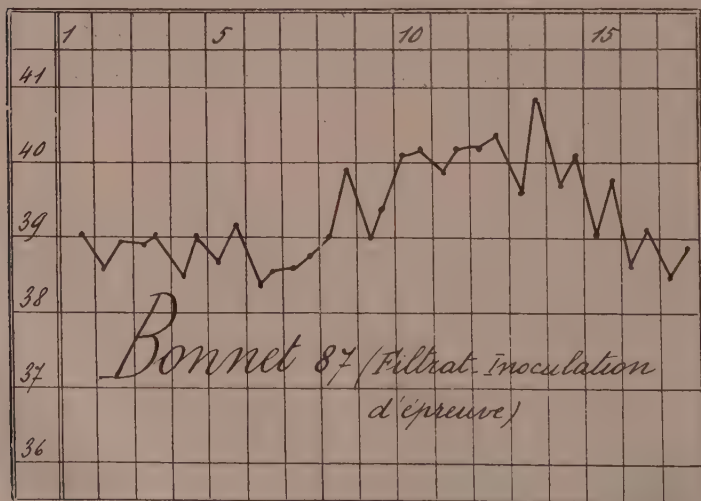 1 5 10 15
41
40
39
38
37
36
Bonnet 87 (Filtrat-Inoculation
d'épreuve)